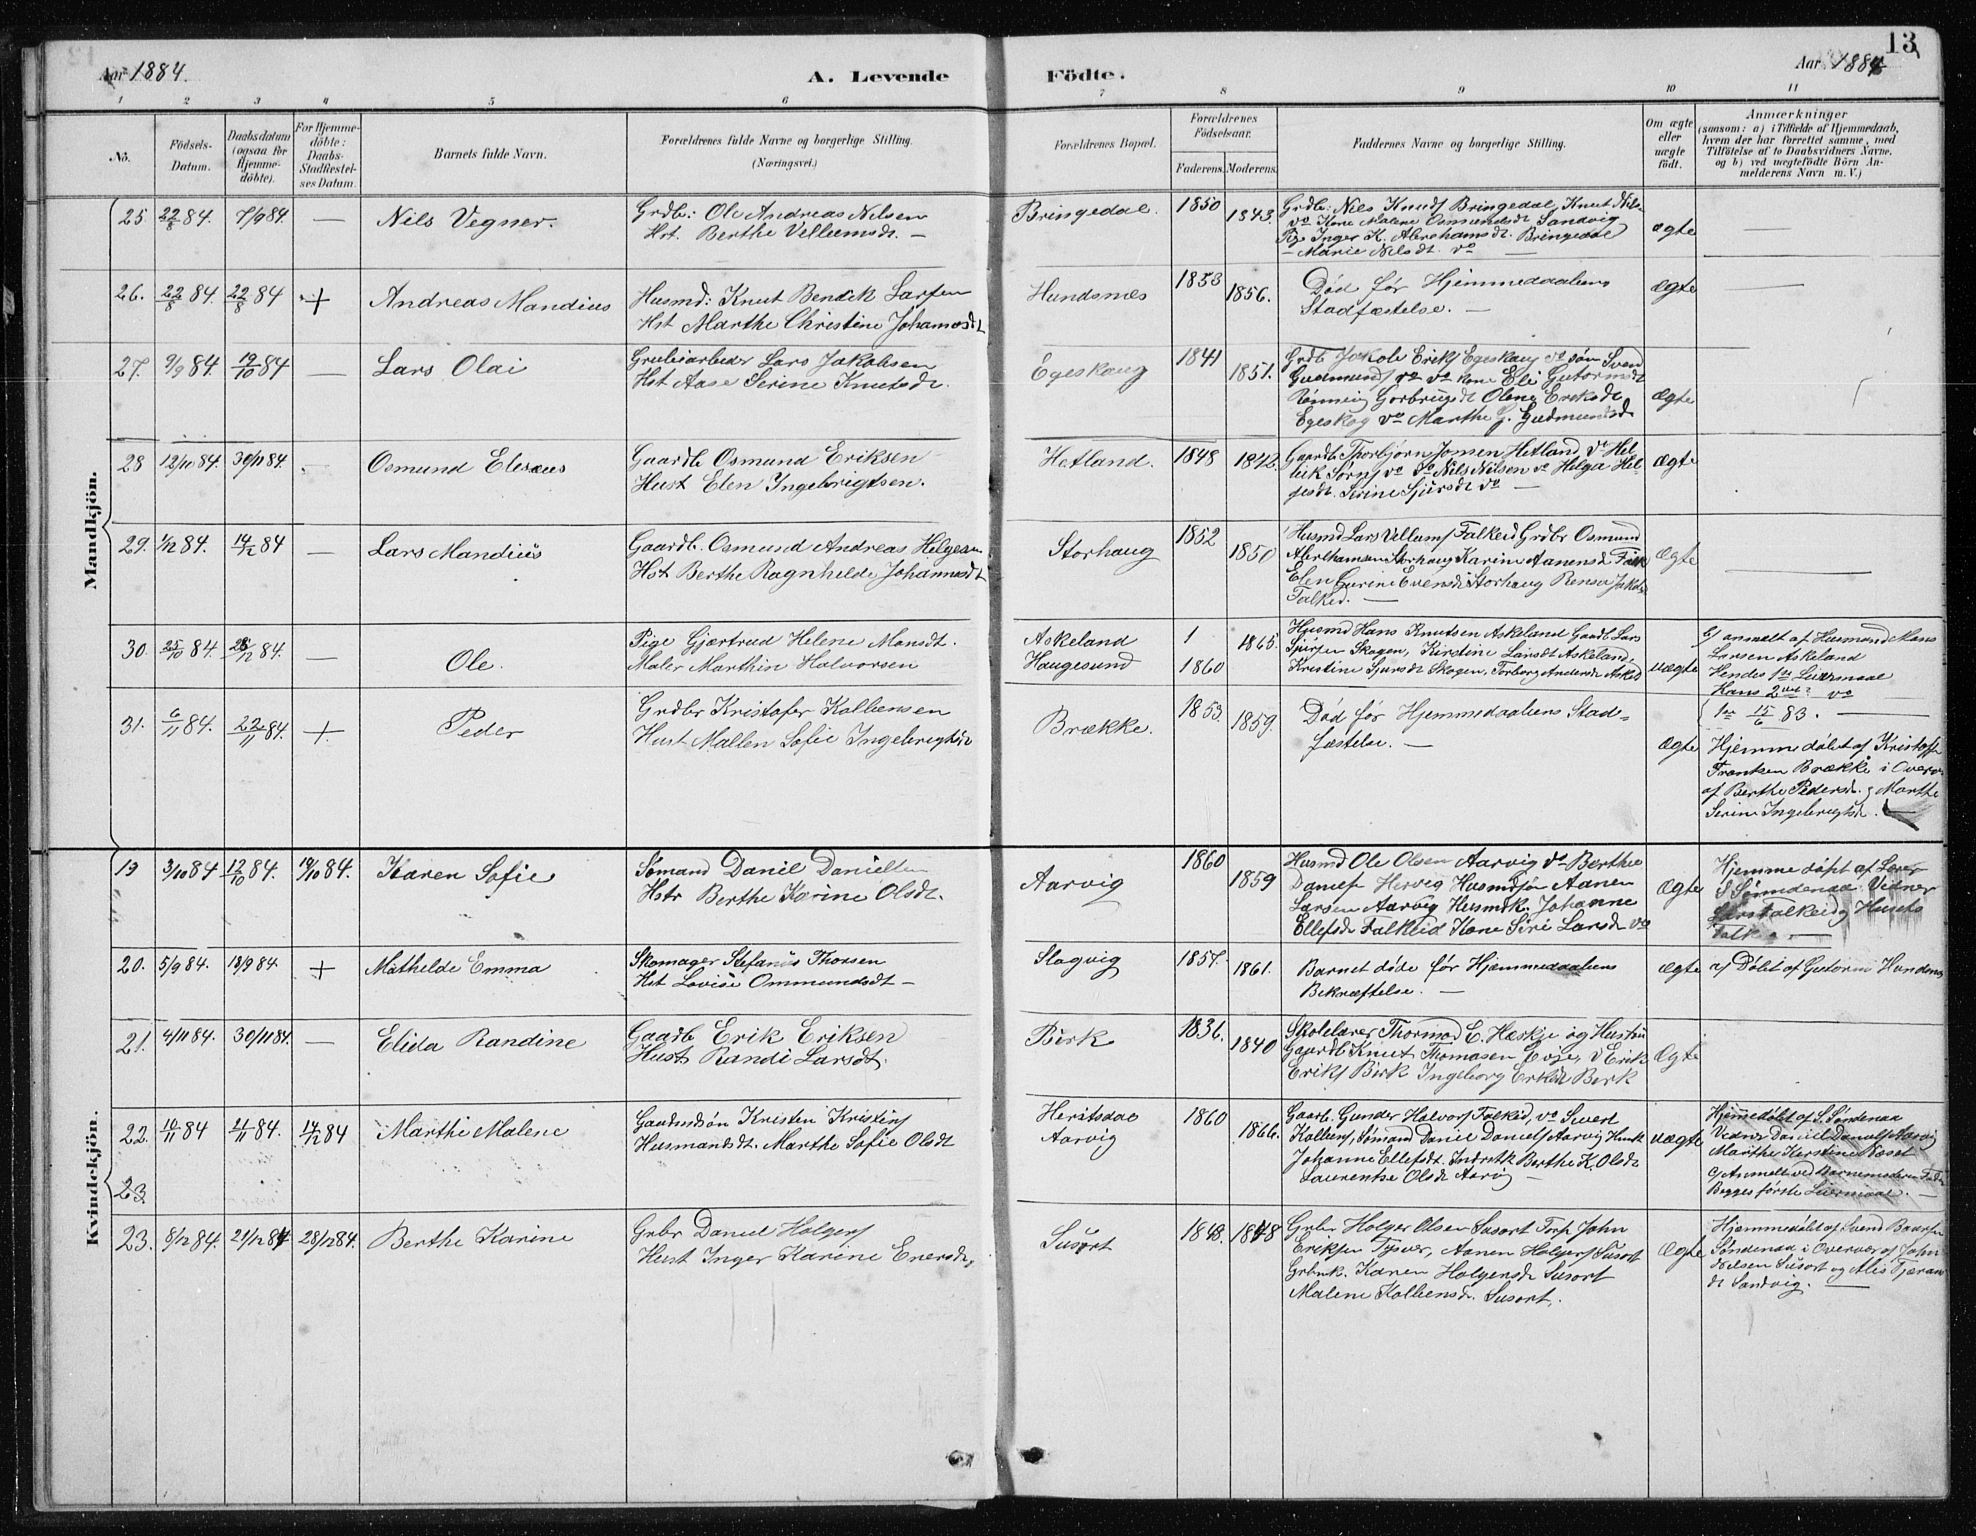 Aar 1884.
A. Levende Födte.
13
Aar 1884
1 2 3 4 5 6 7 8 9 10 11
No.
Födsels-Datum.
Daabsdatum (ogsaa for Hjemme-döbte).
For Hjemme-döbte: Daabs-Stadfæstel-ses Datum.
Barnets fulde Navn.
Forældrenes fulde Navne og borgerlige Stilling.
(Næringsvei.)
Forældrenes Bopæl.
Forældrenes Födselsaar.
Faderens. Moderens.
Faddernes Navne og borgerlige Stilling.
Om ægte eller uægte födt.
Anmærkninger
(saasom: a) i Tilfælde af Hjemmedaab,
hvem der har forrettet samme, med
Tilföielse af to Daabsvidners Navne,
og b) ved uægtefödte Börn An-
melderens Navn m. V.)
Mandkjön.
25 22/8 84. 7/9 84 — Nils Vegner.
Grdb: Ole Andreas Nilsen
Hst. Berthe Villumsdt. —
Bringedal. 1850 1843.
Grdb: Nils Knuds Bringedal, Knut Nils
vo Kone Malene Osmundsdt Sandvig
Pige Inger K. Abrahamsdt. Bringedal
— Marie Nilsdt. vo —
ægte —
26. 22/8 84. 22/8 84 + Andreas Mandius
Husmd: Knut Bendik Larsen
Hst Marthe Christine Johannesdt
Hundsnes 1853 1856.
Död för Hjemmedaabens
Stadfæstelse. —
ægte —
27. 9/9 84 19/10 84 — Lars Olai
Grubearbeider Lars Jakobsen
Hst Aase Serine Knutsdt.
Egeskaug 1841 1851.
Grdb Jakob Eriks Egeskaug vo søn Svend
Gudmunds vo vo kone Eli Gutormsdt
Rønnvig Gorbrigsdt Olene Eriksdt
Egeskog vo Marthe G. Gudmundsdt
ægte
28 12/10 84. 30/11 84. — Osmund Elesæus
Gaardb Osmund Eriksen
Hust Elen Ingebrigtsen.
Hetland. 1848 1842.
Gaardb. Thorbjørn Jonsen Hetland, vo Hel-
lik Sørns vo do Nils Nilsen vo Helga Hel-
gesdt. Serine Sjursdt vo —
Ægte
29. 1/12 84. 14/12 84 — Lars Mandius
Gaardb. Osmund Andreas Helgesen
Hst Berthe Ragnhilde Johannesdt
Storhaug 1852 1850
Husmd Lars Vellums Falkeid Grdbr Osmund
Abrahamsen Storhaug Karine Aanensd Falk
Elen Serine Evensdt Storhaug Rensa Jakobs
Falkeid. —
Ægte —
30. 25/10 84. 28/12 84. — Ole.
Pige Gjærtrud Helene Mansdt.
Maler Marthin Halvorsen
Askeland
Haugesund
1 1865.
1860
Husmd Hans Knutsen Askeland Gaardb Lars
Sjursen Skogen, Kirstine Larsdt Askeland,
Kristine Sjursdt Skogen, Torborg Andersdt Askel
uægte
b/ anmelt af Husmand Mans
Larsen Askeland
Hendes 1ste Leiermaal
Hans 2det? vo
1ste 15/6 83. —
31. 6/11 84. 22/11 84. + Peder
Grdbr Kristofer Kolbensen
Hust Mallen Sofie Ingebrigtsdt
Brække. 1853. 1859.
Død før Hjemmedaabens Stad=
fæstelse. —
ægte
Hjemmedøbt af Kristoffer
Frantsen Brække i Overvær
af Berthe Pedersdt. og Marthe
Serine Ingebrigtsdt. —
Kvindekjön.
19 3/10 84 12/10 84. 19/10 84. Karen Sofie
Sømand Daniel Danielsen
Hstr Berthe Karine Olsdt.
Aarvig 1860 1859
Husmd Ole Olsen Aarvig vo Berthe
Daniels Hervig Husmdsøn Aanen
Larsen Aarvig Husmdk. Johanne
Ellefsdt Falkeid Kone Siri Larsdt vo
Ægte
Hjemmedøpt af Lærer
S Sønnedenaa. Vidner
Lars Falkeid og Husets
Falk
20. 5/9 84. 13/9 84 + Mathilde Emma
Skomager Stefanus Thorsen
Hst Lovise Ommundsdt —
Slogvig 1857. 1861.
Barnet døde før Hjemmedaabens
Bekræftelse. —
ægte
a/ Døbt af Gutorm Hundsnes
21. 4/11 84. 30/11 84. — Elida Randine
Gaardb Erik Eriksen
Hust Randi Larsdt.
Birk 1836. 1840
Skolelærer Thormod E. Hæskje og Hustru
Gaardb Knut Thomasen Evje, v Erik
Eriks Birk Ingeborg Eriksdt Berk
Ægte
22. 10/11 84 21/11 84. 14/12 84 Marthe Malene
Gaardmdsön Kristen Kristens
Husmandsdt. Marthe Sofie Olsdt
Heritsdal
Aarvig
1860 1866.
Gaardb. Gunder Halvors Falkeid, vo Sivert
Kolbens, Sømand Daniel Daniels Aarvig Hustr
Johanne Ellefsdt. Indrstk Berthe K. Olsdt
Laurentse Olsdt Aarvig —
uægte
Hjemmedøbt af S. Søndenaa
Vidner Daniel Daniels Aarvig
Marthe Kerstine Næset
c/ Anmelt ved Barnemoderen Fader
Begges første Leiermaal. —
23.
23. 8/12 84. 21/12 84 28/12 84. Berthe Karine
Grbr Daniel Holgers
Hust Inger Karine Eversdt,
Susort 1848. 1848
Grbr Holger Olsen Susort Torp John
Eriksen Tysver, Aanen Holgers Susort
Grbmk. Karen Holgersdt Susort
Malene Kolbensdt. Susort.
Ægte
Hjemmedøbt af Svend Baarsen
Søndenaa i Overvær af John
Nilsen Susort og Alis Tjæran
dt Sandvig. —